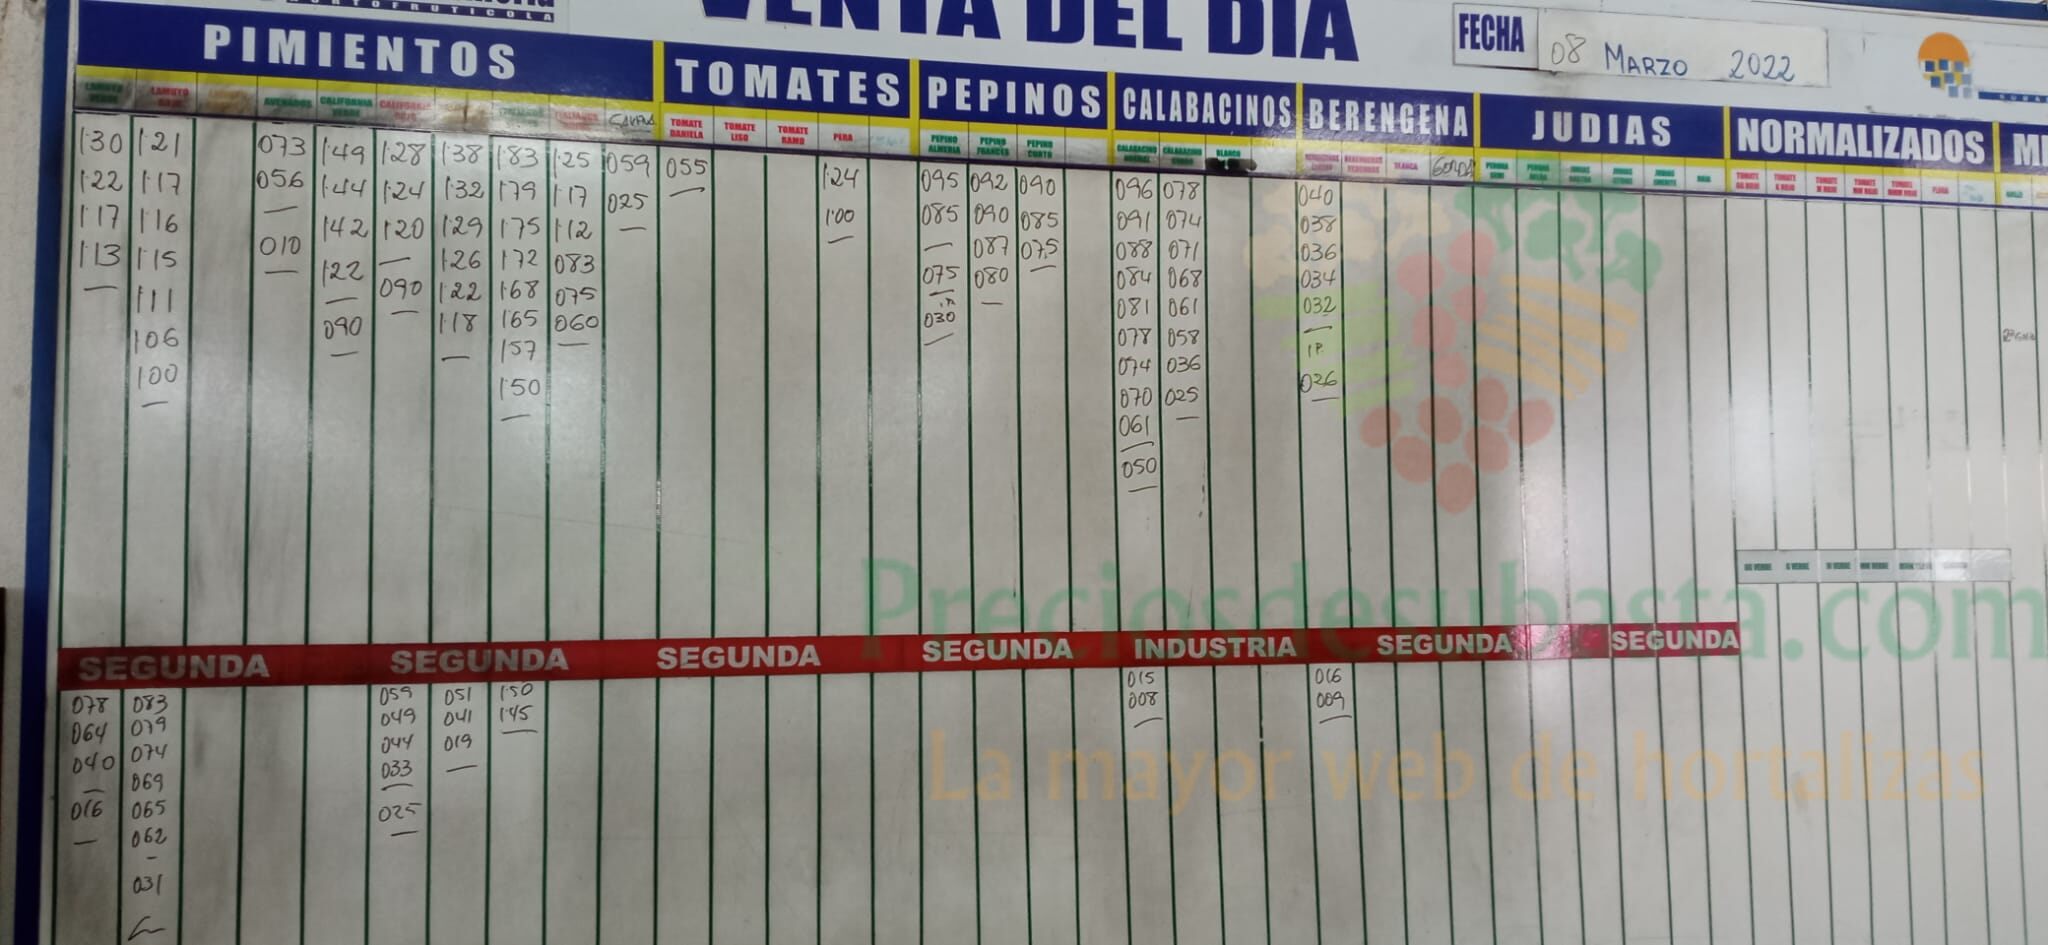 HORTOFRUTICOLA
VENTA DEL DIA
FECHA 08 MARZO 2022
PIMIENTOS TOMATES PEPINOS CALABACINOS BERENGENA JUDIAS NORMALIZADOS
LAMUYO VERDE
LAMUYO ROJO
AVENADOS
CALIFORNIA VERDE
CALIFORNIA ROJO
TOMATE DANIELA
TOMATE LISO
TOMATE RAMO
PERA
PEPINO ALMERIA
PEPINO FRANCES
PEPINO CORTO
CALABACINO
CALABACINO GORDO
BLANCO
BLANCA
GORDA
1'30
1'22
1'17
1'13
1'21
1'17
1'16
1'15
1'11
1'06
1'00
073
056
010
1'49
1'44
1'42
1'22
090
1'28
1'24
1'20
090
1'38
1'32
1'29
1'26
1'22
1'18
1'83
1'79
1'75
1'72
1'68
1'65
1'57
1'50
1'25
1'17
1'12
083
075
060
059
025
055
1'24
1'00
095
085
075
030
092
090
087
080
090
085
075
096
091
088
084
081
078
074
070
061
050
078
074
071
068
061
058
036
025
040
038
036
034
032
1P.
026
Preciosdesubasta.com
SEGUNDA SEGUNDA SEGUNDA SEGUNDA INDUSTRIA SEGUNDA SEGUNDA
078
064
040
016
083
079
074
069
065
062
031
059
049
044
033
025
051
041
019
1'50
1'45
015
008
016
009
La mayor web de hortalizas